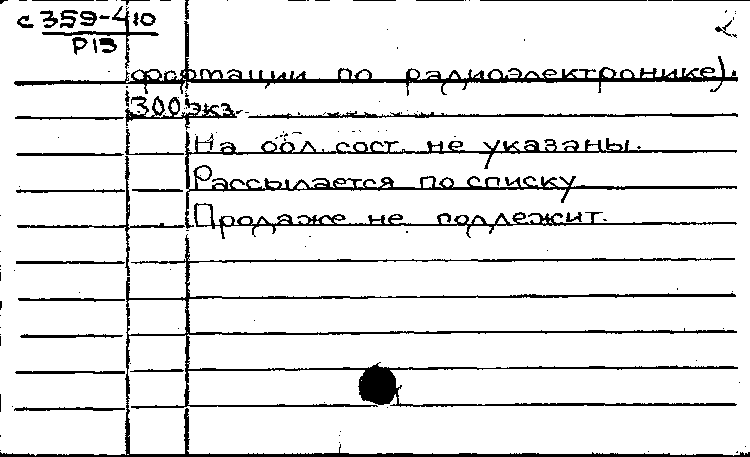 с 359-410
Р13
2
формации по радиоэлектронике).
300 экз.
На обл. сост. не указаны.
Рассылается по списку
Продаже не подлежит.